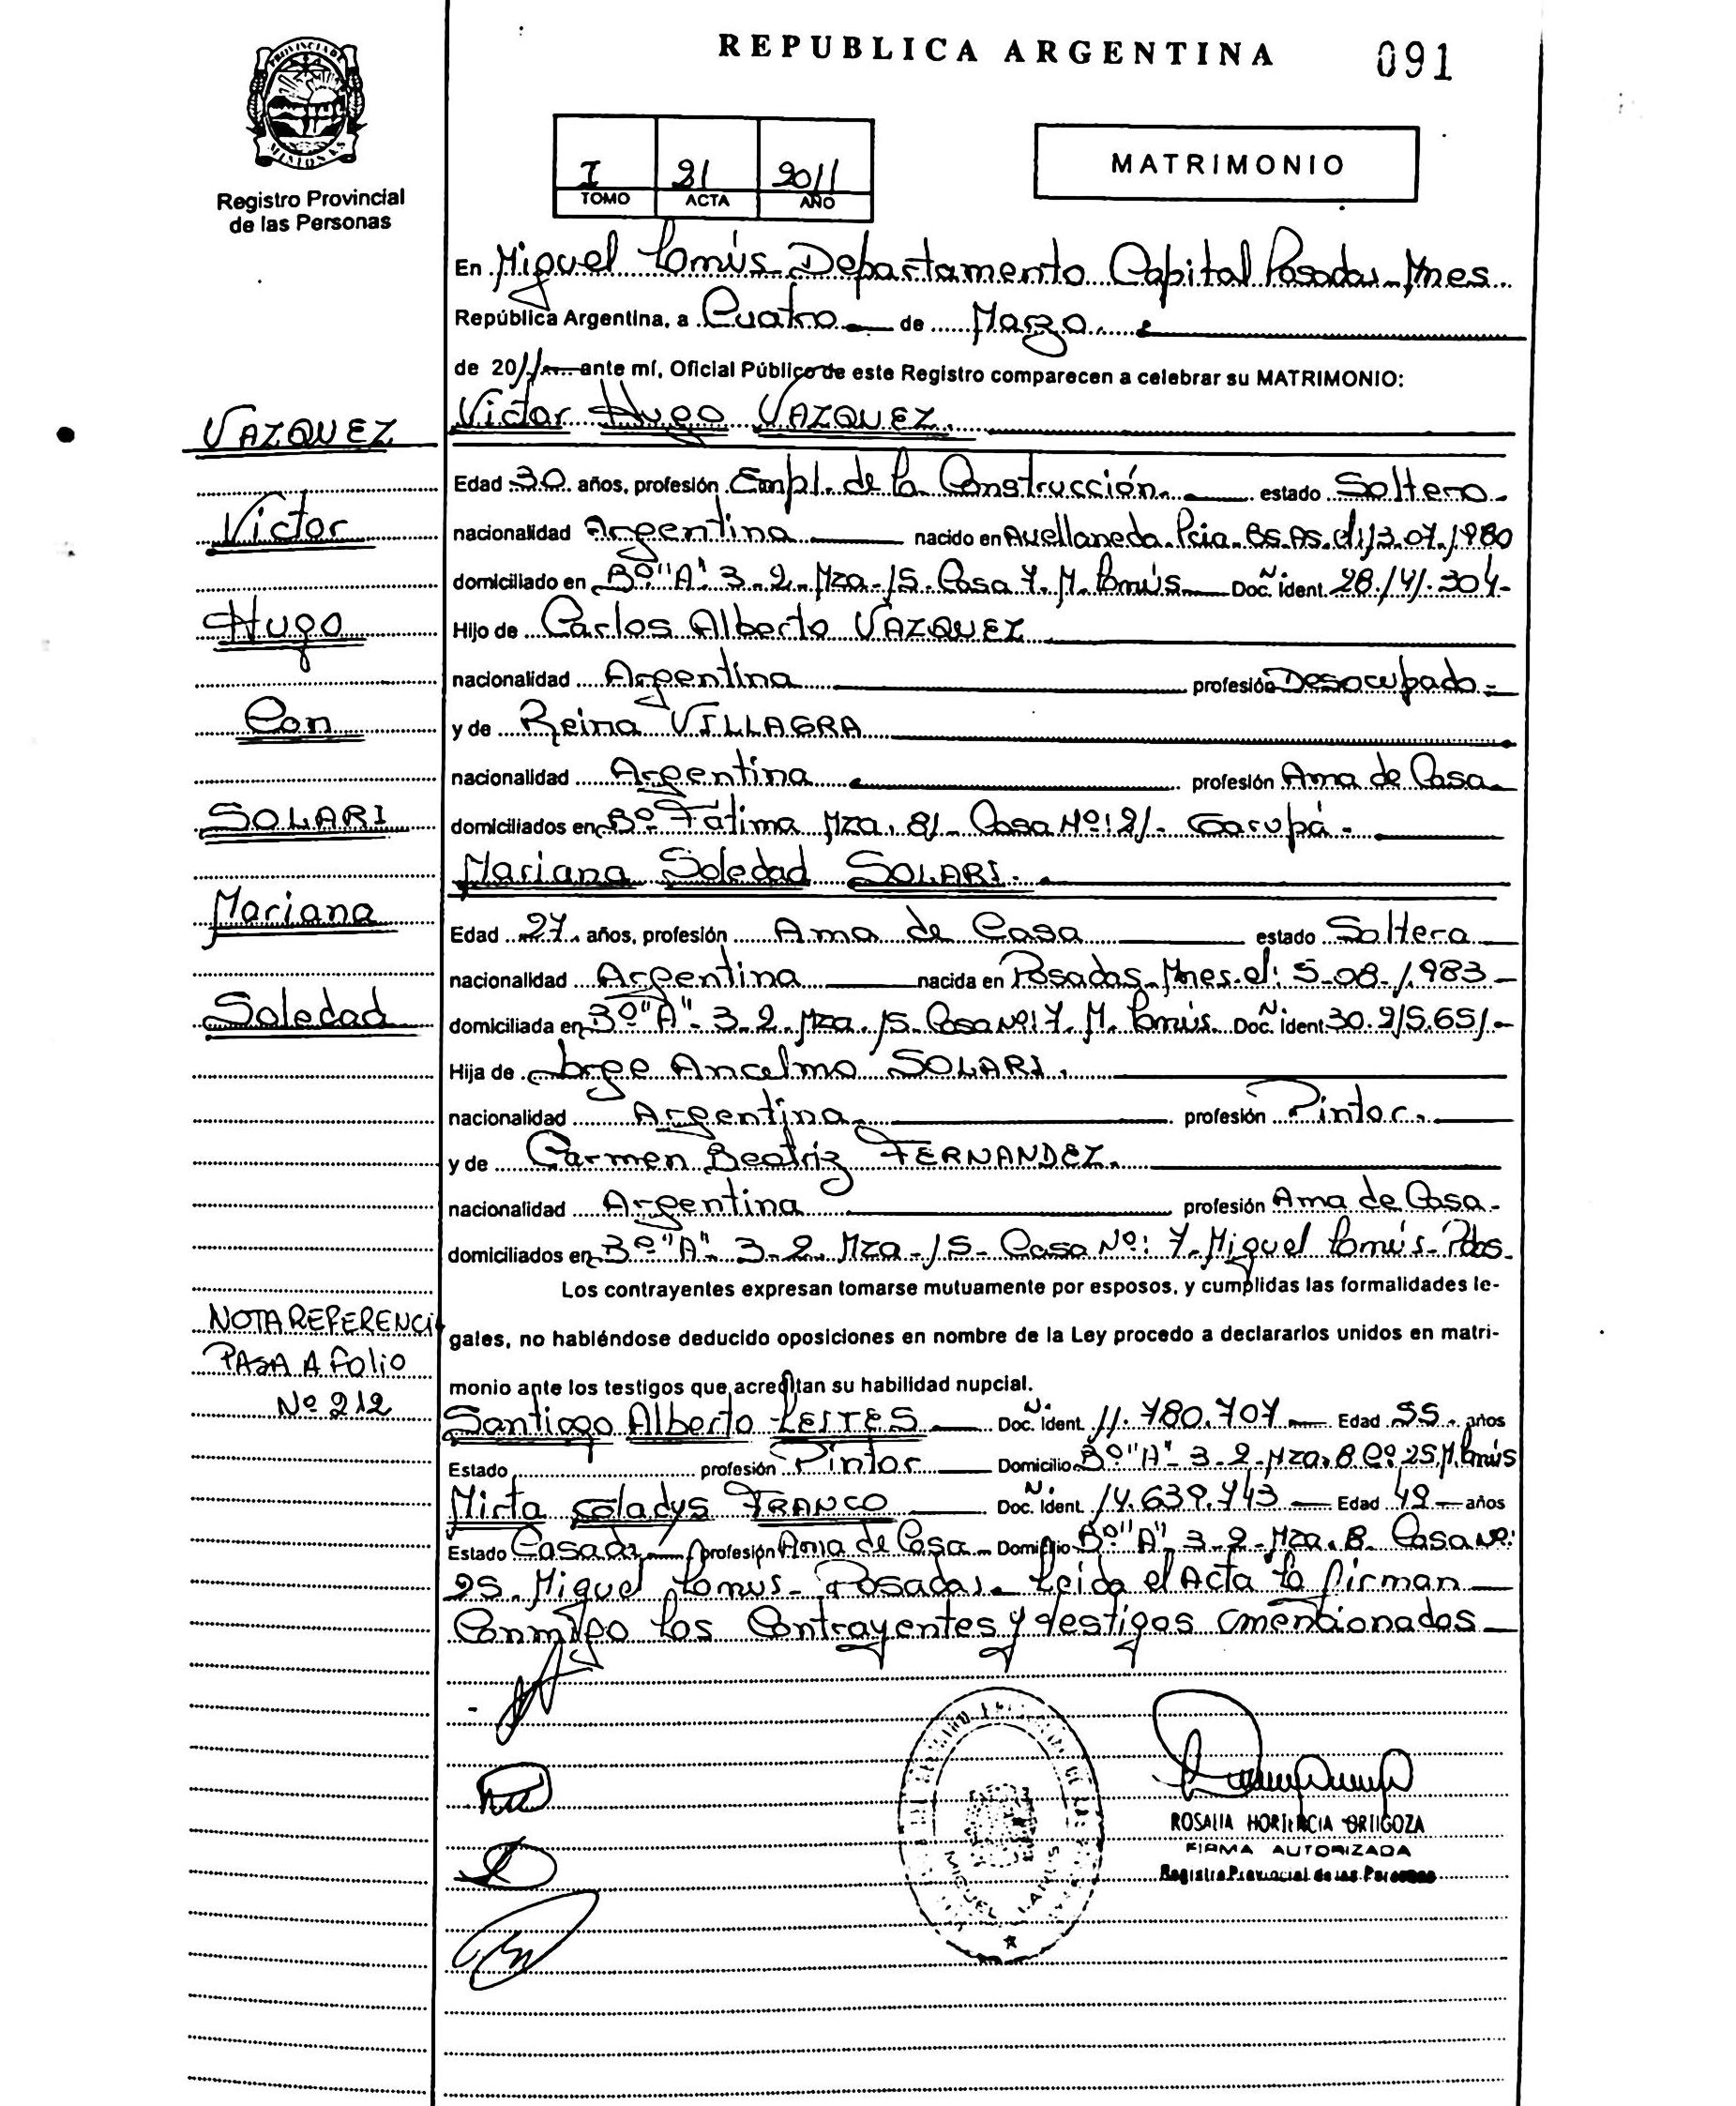 REPUBLICA ARGENTINA
091
PROVINCIA DE MISIONES
Registro Provincial
de las Personas
I 91 2011
TOMO ACTA AÑO
MATRIMONIO
En Miguel Lanús- Departamento Capital Posadas- Mnes.
República Argentina, a Cuatro de Marzo.
de 2011 ante mí, Oficial Público de este Registro comparecen a celebrar su MATRIMONIO:
Victor Hugo VAZQUEZ.
Edad 30 años, profesión Empl. de la Construcción. estado Soltero-
nacionalidad Argentina nacido en Avellaneda. Pcia. Bs. As. el: 13.07.1980
domiciliado en Bº "A" 3-2. Mza-15. Casa 7. M. Lanús Doc. Ident. Nº 28.141.304-
Hijo de Carlos Alberto VAZQUEZ
nacionalidad Argentina profesión Desocupado-
y de Reina VILLAGRA
nacionalidad Argentina profesión Ama de Casa-
domiciliados en Bº Fátima Mza. 81- Casa Nº: 21- Garupá-
Mariana Soledad SOLARI.
Edad 27. años, profesión Ama de Casa estado Soltera
nacionalidad Argentina nacida en Posadas- Mnes. el: 5-08-1983-
domiciliada en Bº "A"- 3-2. Mza. 15. Casa Nº: 7. M. Lanús. Doc. Ident. Nº 30.215.651-
Hija de Jorge Ancelmo SOLARI.
nacionalidad Argentina profesión Pintor.
y de Carmen Beatriz FERNANDEZ.
nacionalidad Argentina profesión Ama de Casa-
domiciliados en Bº "A"- 3-2. Mza-15- Casa Nº: 7- Miguel Lanús- Pdas.
Los contrayentes expresan tomarse mutuamente por esposos, y cumplidas las formalidades le-
gales, no habiéndose deducido oposiciones en nombre de la Ley procedo a declararlos unidos en matri-
monio ante los testigos que acreditan su habilidad nupcial.
Santiago Alberto LEITES Doc. Ident. Nº 11.780.707 Edad 55. años
Estado profesión Pintor Domicilio Bº "A"- 3-2-Mza. 8 Cº: 25 M. Lanús
Mirta Gladys FRANCO Doc. Ident. Nº 14.639.743 Edad 49 años
Estado Casada profesión Ama de Casa- Domicilio Bº "A" 3-2-Mza. 8. Casa Nº:
25. Miguel Lanús- Posadas- Leida el Acta la firman
Conmigo los Contrayentes y testigos mencionados
VAZQUEZ
Victor
Hugo
Con
SOLARI
Mariana
Soledad
NOTA REFERENCI
PASA A folio
Nº 212
MIGUEL LANUS
ROSALIA HORTENCIA ORTIGOZA
FIRMA AUTORIZADA
Registro Provincial de las Personas